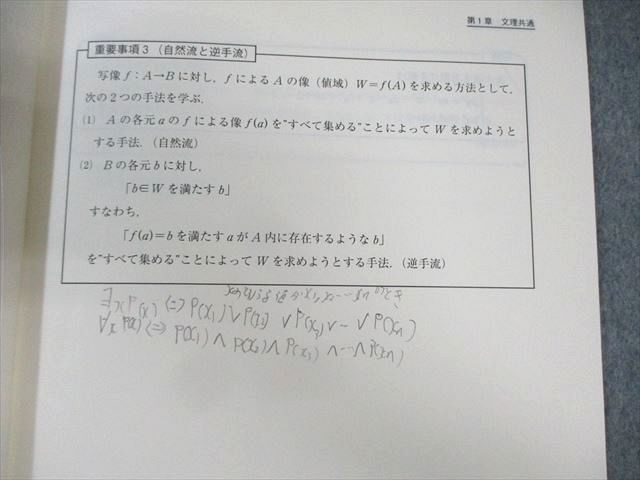 第1章 文理共通
重要事項3(自然流と逆手流)
写像 f:A→B に対し,f による A の像(値域)W=f(A) を求める方法として,
次の2つの手法を学ぶ.
(1) A の各元 a の f による像 f(a) を"すべて集める"ことによって W を求めようと
する手法.(自然流)
(2) B の各元 b に対し,
「b∈W を満たす b」
すなわち,
「f(a)=b を満たす a が A 内に存在するような b」
を"すべて集める"ことによって W を求めようとする手法.(逆手流)
∃x P(x) ⇔ P(x₁) ∨ P(x₂) ∨ P(x₃) ∨ … ∨ P(xn)
∀x P(x) ⇔ P(x₁) ∧ P(x₂) ∧ P(x₃) ∧ … ∧ P(xn)